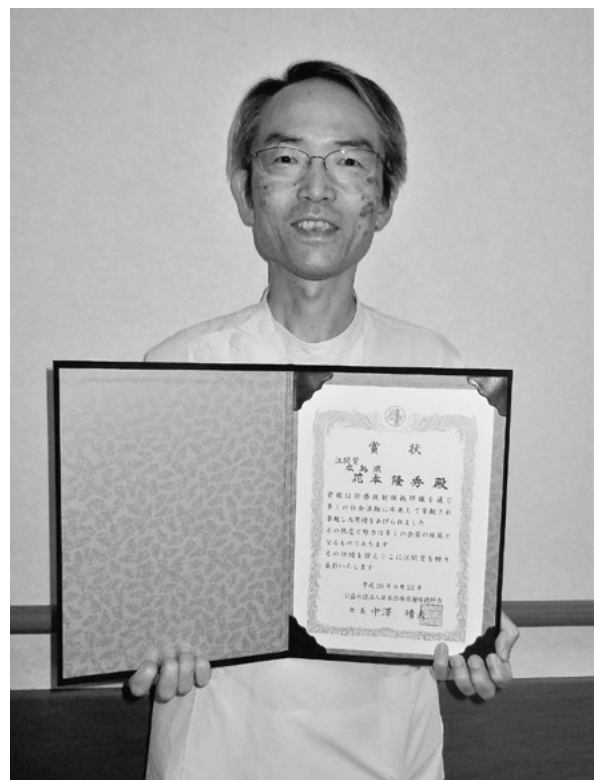 賞状
江間賞
広島県
花本隆秀殿
貴殿は診療放射線技師職を通じ
多くの社会活動に率先して貢献され
卓越した業績をあげられました
その熱意と努力は多くの会員の模範と
なるものであります
その功績を讃えここに江間賞を贈り
表彰いたします
平成29年9月22日
公益社団法人日本診療放射線技師会
会長 中澤靖夫